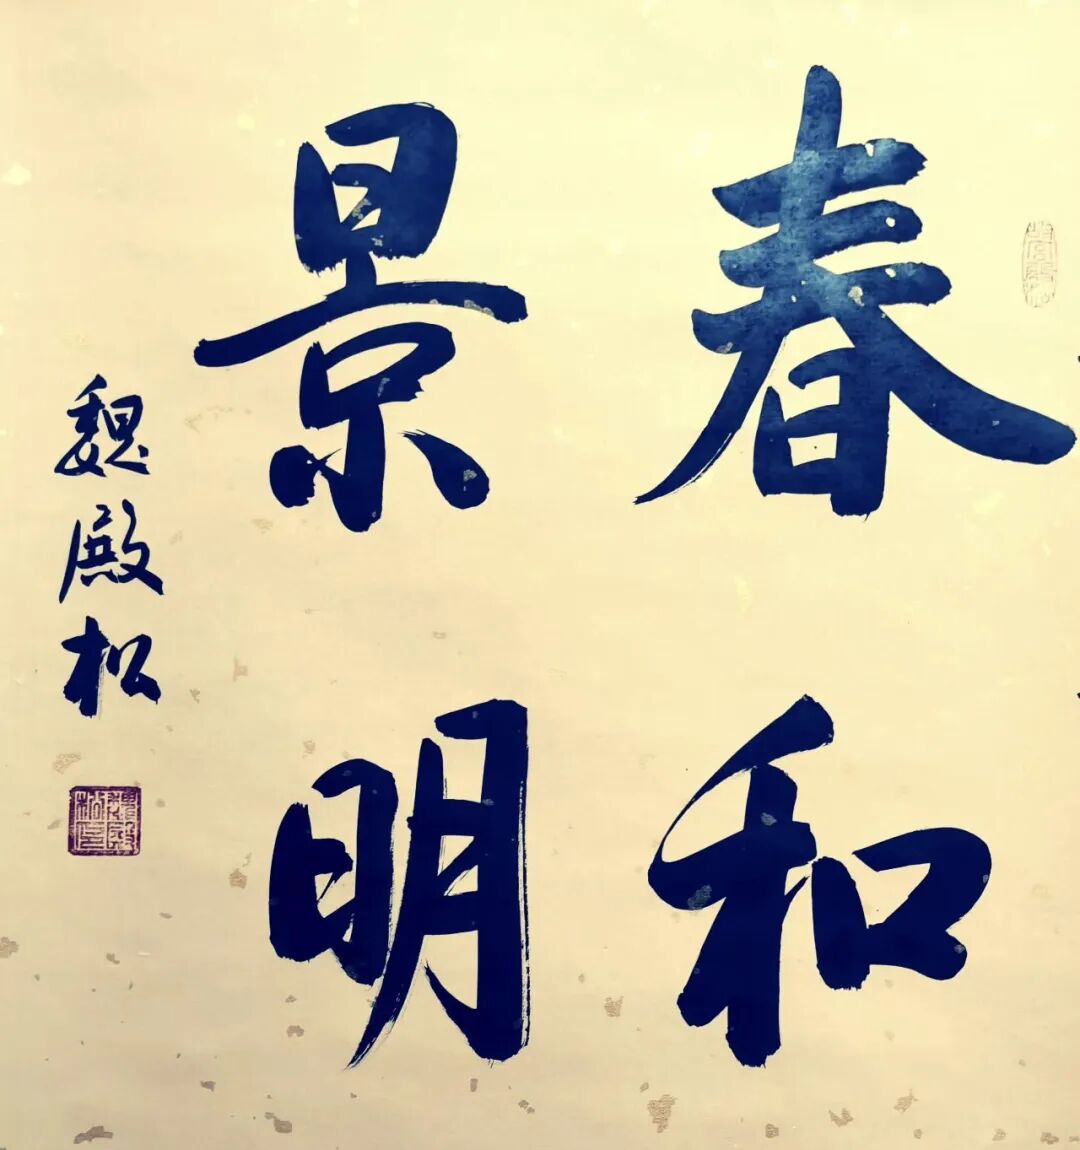 春和
景明
魏殿松